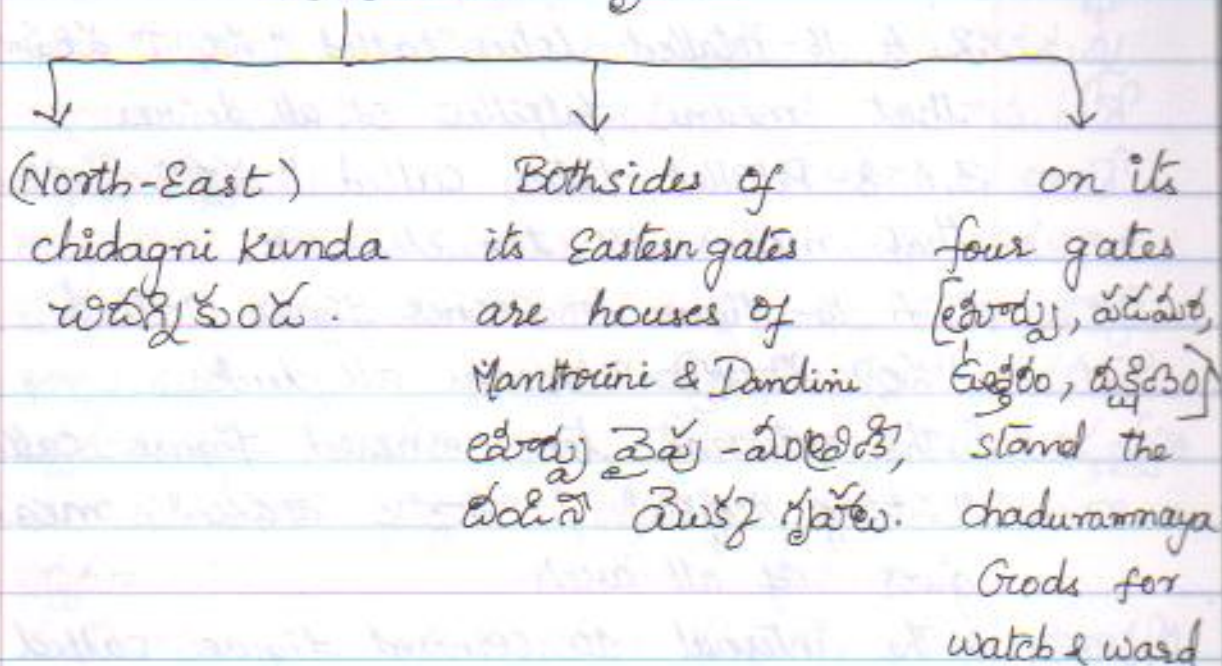 (North-East)
chidagni Kunda
చిదగ్నికుండం.
Bothsides of
its Eastern gates
are houses of
Manthrini & Dandini
తూర్పు వైపు - మంత్రిణీ,
దండిని యొక్క గృహాలు.
on its
four gates
[తూర్పు, పడమర,
ఉత్తరం, దక్షిణం]
stand the
chaduramnaya
Gods for
watch & ward